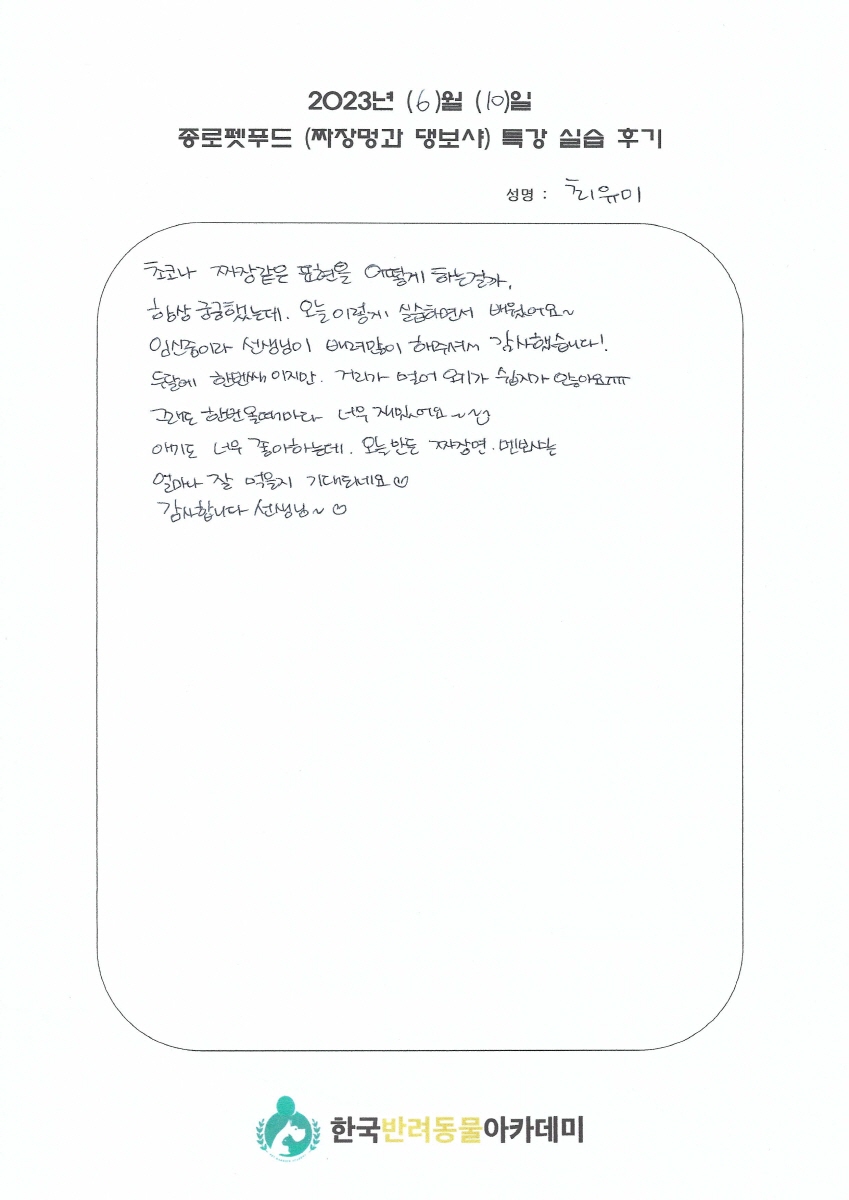 2023년 (6)월 (10)일
종로펫푸드 (짜장멍과 댕보샤) 특강 실습 후기
성명 : 최유미
초코나 짜장같은 표현을 어떻게 하는걸까,
항상 궁금했는데. 오늘 이렇게 실습하면서 배웠어요~
임신중이라 선생님이 배려많이 해주셔서 감사했습니다!
두달에 한번째이지만. 거리가 멀어 오기가 쉽지가 않아요ㅠㅠ
그래도 한번 올때마다 너무 재밌어요~
애기도 너무 좋아하는데. 오늘 만든 짜장면. 멘보샤는
얼마나 잘 먹을지 기대되네요♡
감사합니다 선생님~ ♡
한국반려동물아카데미